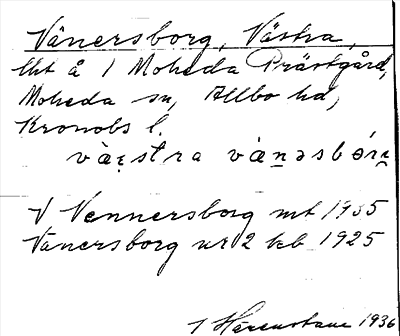 Vänersborg, Västra,
lht å 1 Moheda Prästgård,
Moheda sn, Allbo hd,
Kronobs l.
væ̀stra và̀nəsbór
V Vennersborg mt 1935
Vänersborg nr 2 kb 1925
1936